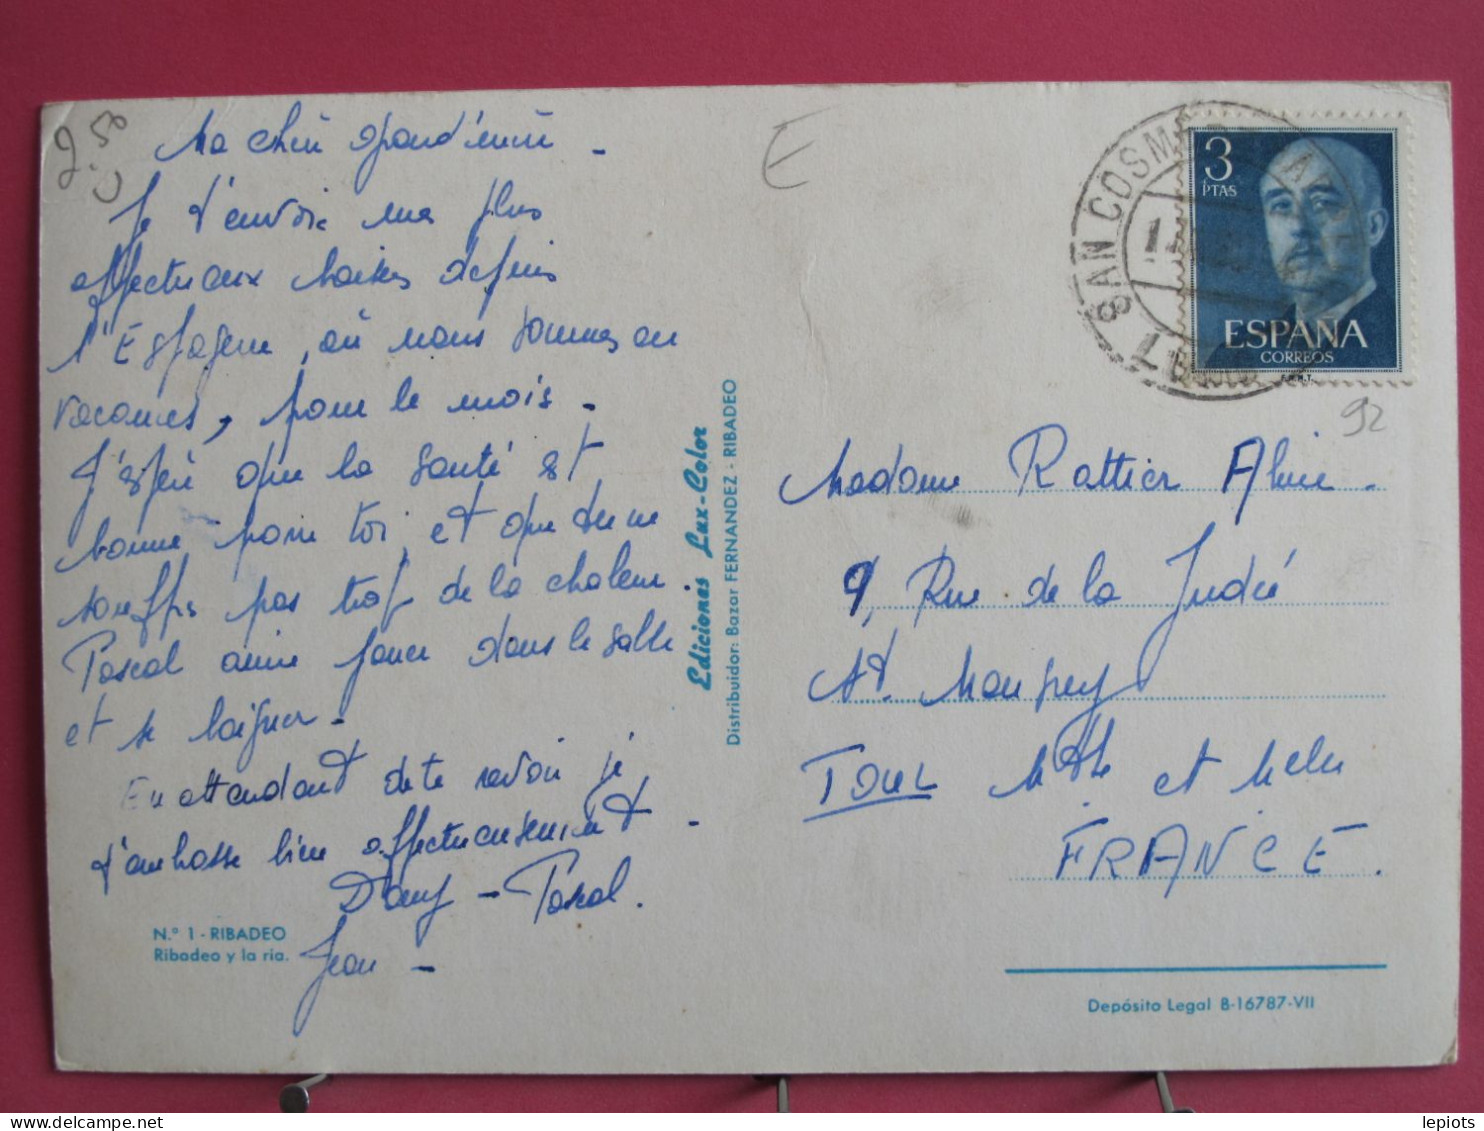 2.50
Ma chère grand'mère -
Je t'envoie mes plus
affectueux baisers depuis
l'Espagne, où nous sommes en
vacances, pour le mois -
J'espère que la santé est
bonne pour toi, et que tu ne
souffres pas trop de la chaleur.
Pascal aime jouer dans le sable
et se baigner -
En attendant de te revoir je
t'embrasse bien affectueusement -
Dany - Pascal.
Jean -
N.º 1 - RIBADEO
Ribadeo y la ria.
Ediciones Lux-Color
Distribuidor: Bazar FERNANDEZ - RIBADEO
E
SAN COSME
3
PTAS
ESPAÑA
CORREOS
F.N.M.T.
92
Madame Rattier Aline.
9, Rue de la Judée
St. Maupey
TOUL Mthe et Melle
FRANCE.
Depósito Legal B-16787-VII
lepiots